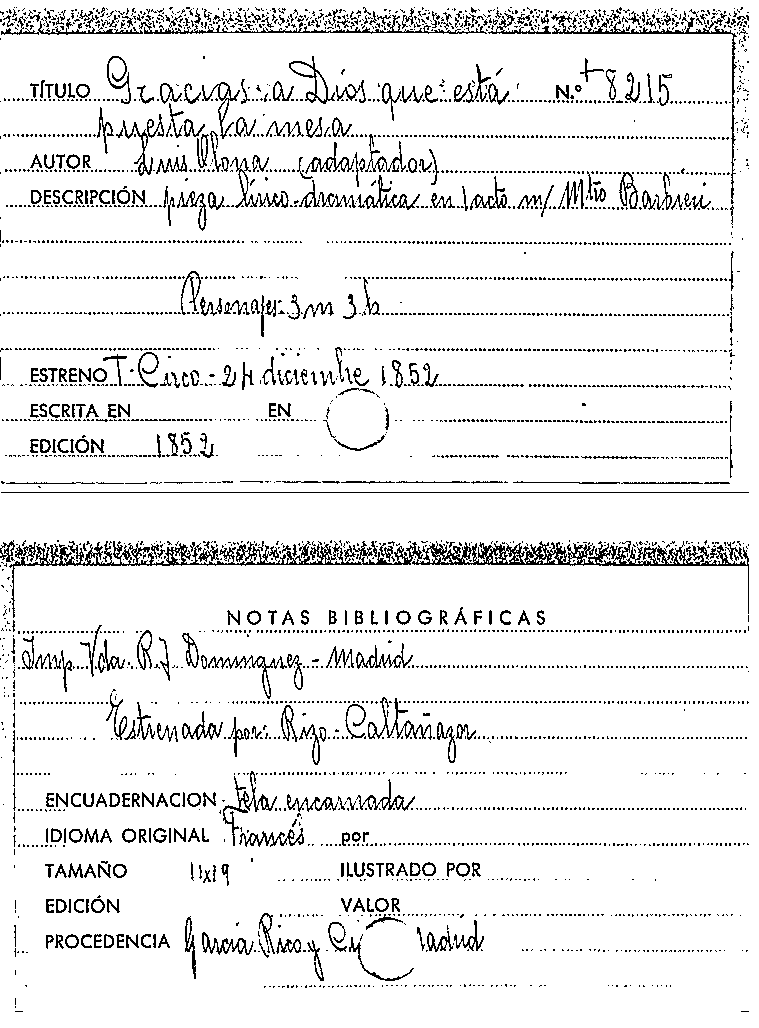 TÍTULO Gracias a Dios que está N.º +8215
puesta la mesa
AUTOR Luis Olona (adaptador)
DESCRIPCIÓN pieza lírico-dramática en 1 acto m/ Mtro Barbieri
Personajes 3m 3h
ESTRENO T. Circo - 24 diciembre 1852
ESCRITA EN EN
EDICIÓN 1852
NOTAS BIBLIOGRÁFICAS
Imp Vda. R.J Dominguez - Madrid
Estrenada por: Rizo - Caltañazor
ENCUADERNACION tela encarnada
IDIOMA ORIGINAL Francés por
TAMAÑO 11x19 ILUSTRADO POR
EDICIÓN VALOR
PROCEDENCIA García Rico y adrid